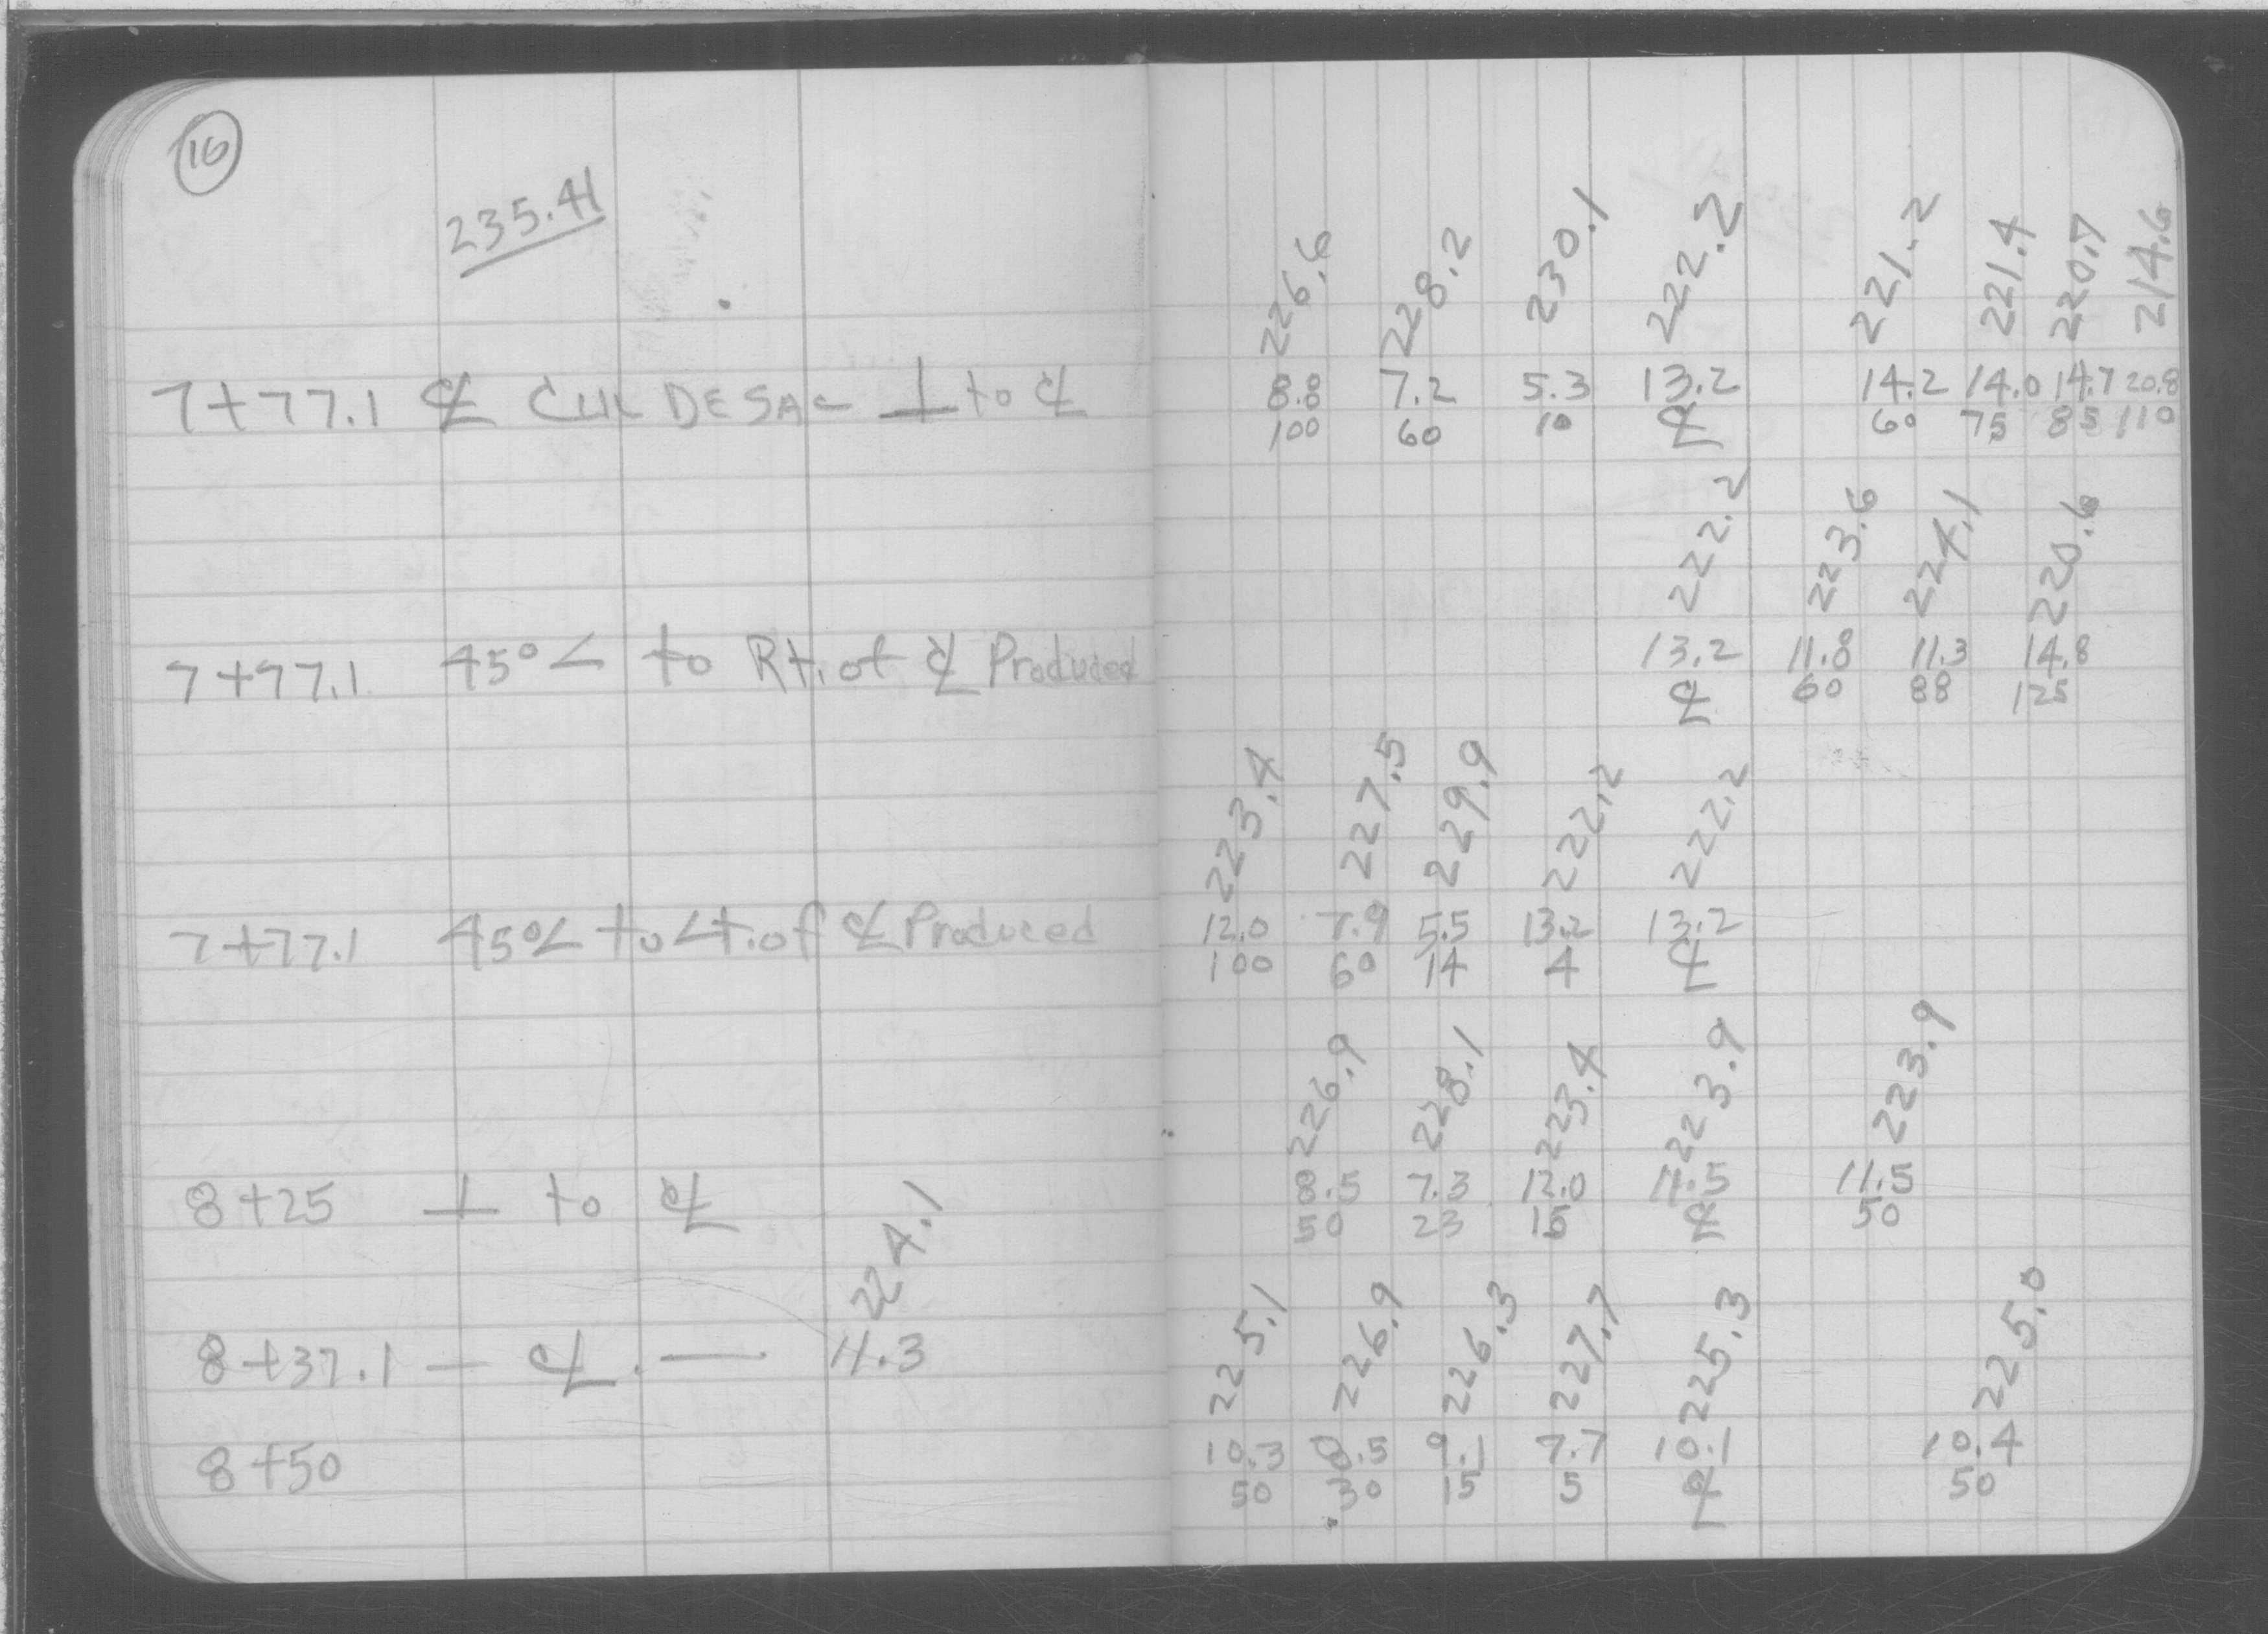 16
235.41
226.6 228.2 230.1 222.2 221.2 221.4 220.7 214.6
7+77.1 ℄ CUL DE SAC ⊥ to ℄ 8.8 7.2 5.3 13.2 14.2 14.0 14.7 20.8
100 60 10 ℄ 60 75 85 110
222.2 223.6 224.1 220.6
7+77.1 45°∠ to Rt. of ℄ Produced 13.2 11.8 11.3 14.8
℄ 60 88 125
223.4 227.5 229.9 222.2 222.2
7+77.1 45°∠ to Lt. of ℄ Produced 12.0 7.9 5.5 13.2 13.2
100 60 14 4 ℄
226.9 228.1 223.4 223.9 223.9
8+25 ⊥ to ℄ 8.5 7.3 12.0 11.5 11.5
50 23 15 ℄ 50
224.1
8+37.1 — ℄ — 11.3
225.1 226.9 226.3 227.7 225.3 225.0
8+50 10.3 8.5 9.1 7.7 10.1 10.4
50 30 15 5 ℄ 50